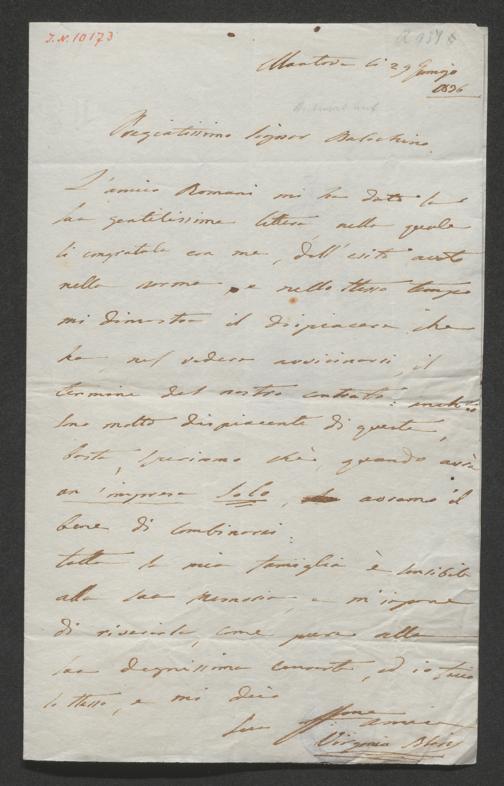 J.N. 10173
Mantova li 29 Giugno
1836
Pregiatissimo Signor Balochino
L'amico Romani mi ha dato la
sua gentilissima lettera, nella quale
si congratula con me, dell'esito avuto
nella norma, e nello stesso tempo
mi dimostra il dispiacere che
ha, nel vedere avvicinarsi, il
termine del nostro contratto: anch'io
sono molto dispiacente di questo,
basta, speriamo chè, quando avrà
un'impresa Solo, avremo il
bene di combinarsi:
tutta la mia famiglia è sensibile
alla sua memoria e m'impone
di riverirla, come pure alla
sua degnissima consorte, ed io faccio
lo stesso, e mi dico
Sua affma amica
Virginia Blasis